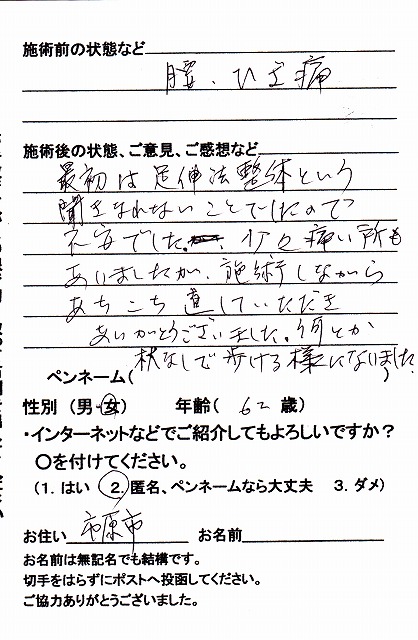 施術前の状態など
腰、ひざ痛
施術後の状態、ご意見、ご感想など
最初は足伸法整体という
聞きなれないことでしたので
不安でした。少々痛い所も
ありましたが、施術しながら
あちこち直していただき
ありがとうございました。何とか
杖なしで歩ける様になりました
ペンネーム( )
性別 (男・女) 年齢( 62 歳)
・インターネットなどでご紹介してもよろしいですか?
〇を付けてください。
(1. はい 2. 匿名、ペンネームなら大丈夫 3. ダメ)
お住い 市原市 お名前
お名前は無記名でも結構です。
切手をはらずにポストへ投函してください。
ご協力ありがとうございました。